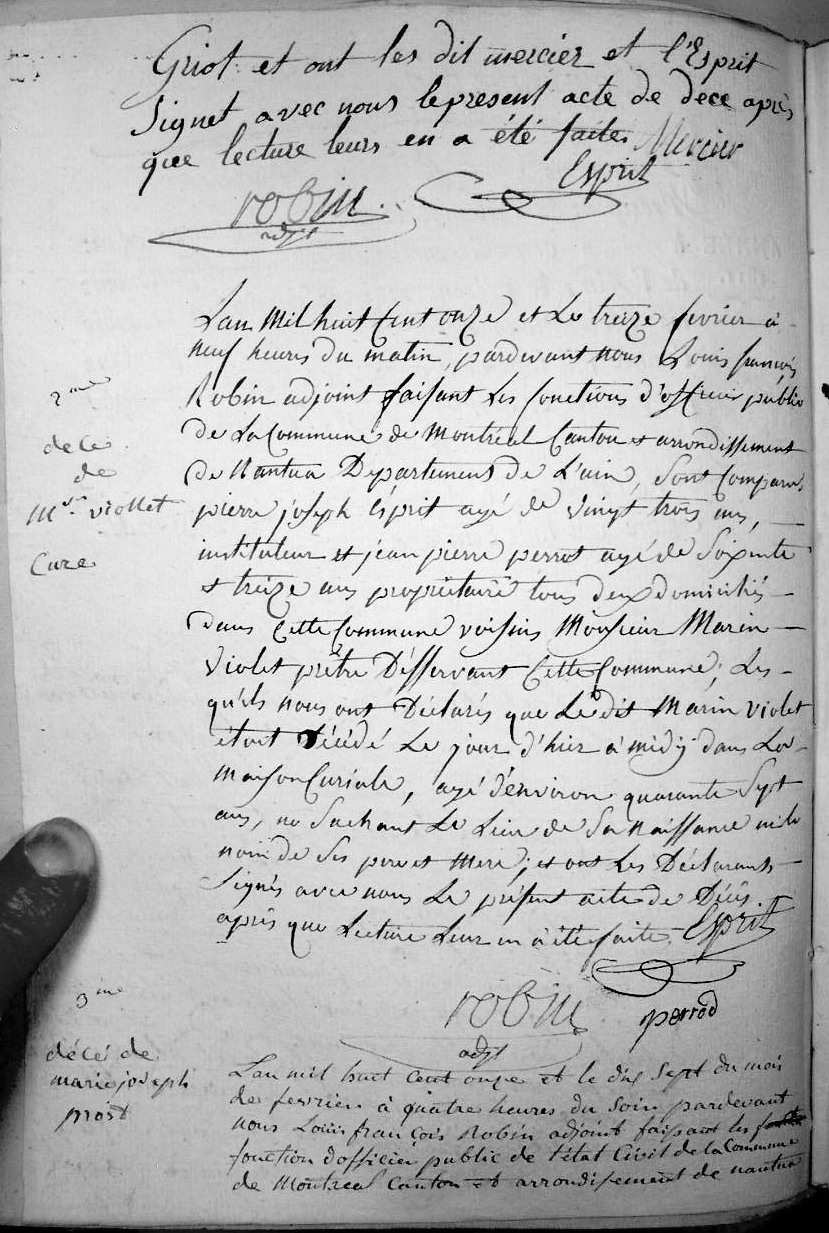 Griot et ont les dit mercier et l'Esprit
signet avec nous lepresent acte de dece après
que lecture leurs en a été faites Mercier
Esprit
robin
adjt
L'an Mil huit Cent onze et Le treize fevrier à
neuf heures du matin, pardevant nous Louis françois
Robin adjoint faisant Les fonctions d'officier public
de La Commune de Montréal Canton et arrondissement
de Nantua Departement de L'ain, Sont Comparus
pierre joseph Esprit agé de vingt trois ans,
instituteur et jean pierre perrot agé de Soixante
et treize ans propriétaire tous deux domiciliés
dans Cette Commune voisins Monsieur Marin
Violet prêtre Déssservant Cette Commune; Les-
qu'els nous ont Déclarés que Le dit Marin violet
étoit Décédé Le jour d'hier à midy dans La
maison Curiale, agé d'environ quarante Sept
ans, ne Sachant Le Lieu de Sa Naissance ni le
nom de Ses pere et Mere; et ont Les Déclarants
Signés avec nous Le présent acte de Décés
après que Lecture Leur en à été faite. Esprit
2me
décé
de
Mr viollet
Cure
robin
adjt
perrod
3me
décé de
marie joseph
prost
L'an mil huit cent onze et le dix sept du mois
de fevrier à quatre heures du soir pardevant
nous Louis françois Robin adjoint faisant les
fonction dofficier public de l'état Civil de la Commune
de Montreal Canton et arrondisement de nantua